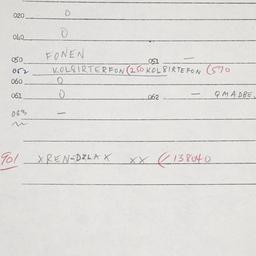 020 0
040 0
050 FONEN 051 —
052 KOLGIRTERFON (250 KOLGIRTEFON (570
060 0
061 0 062 — GMADBE.
063 —
901 XREN-DZLAX XX (138040